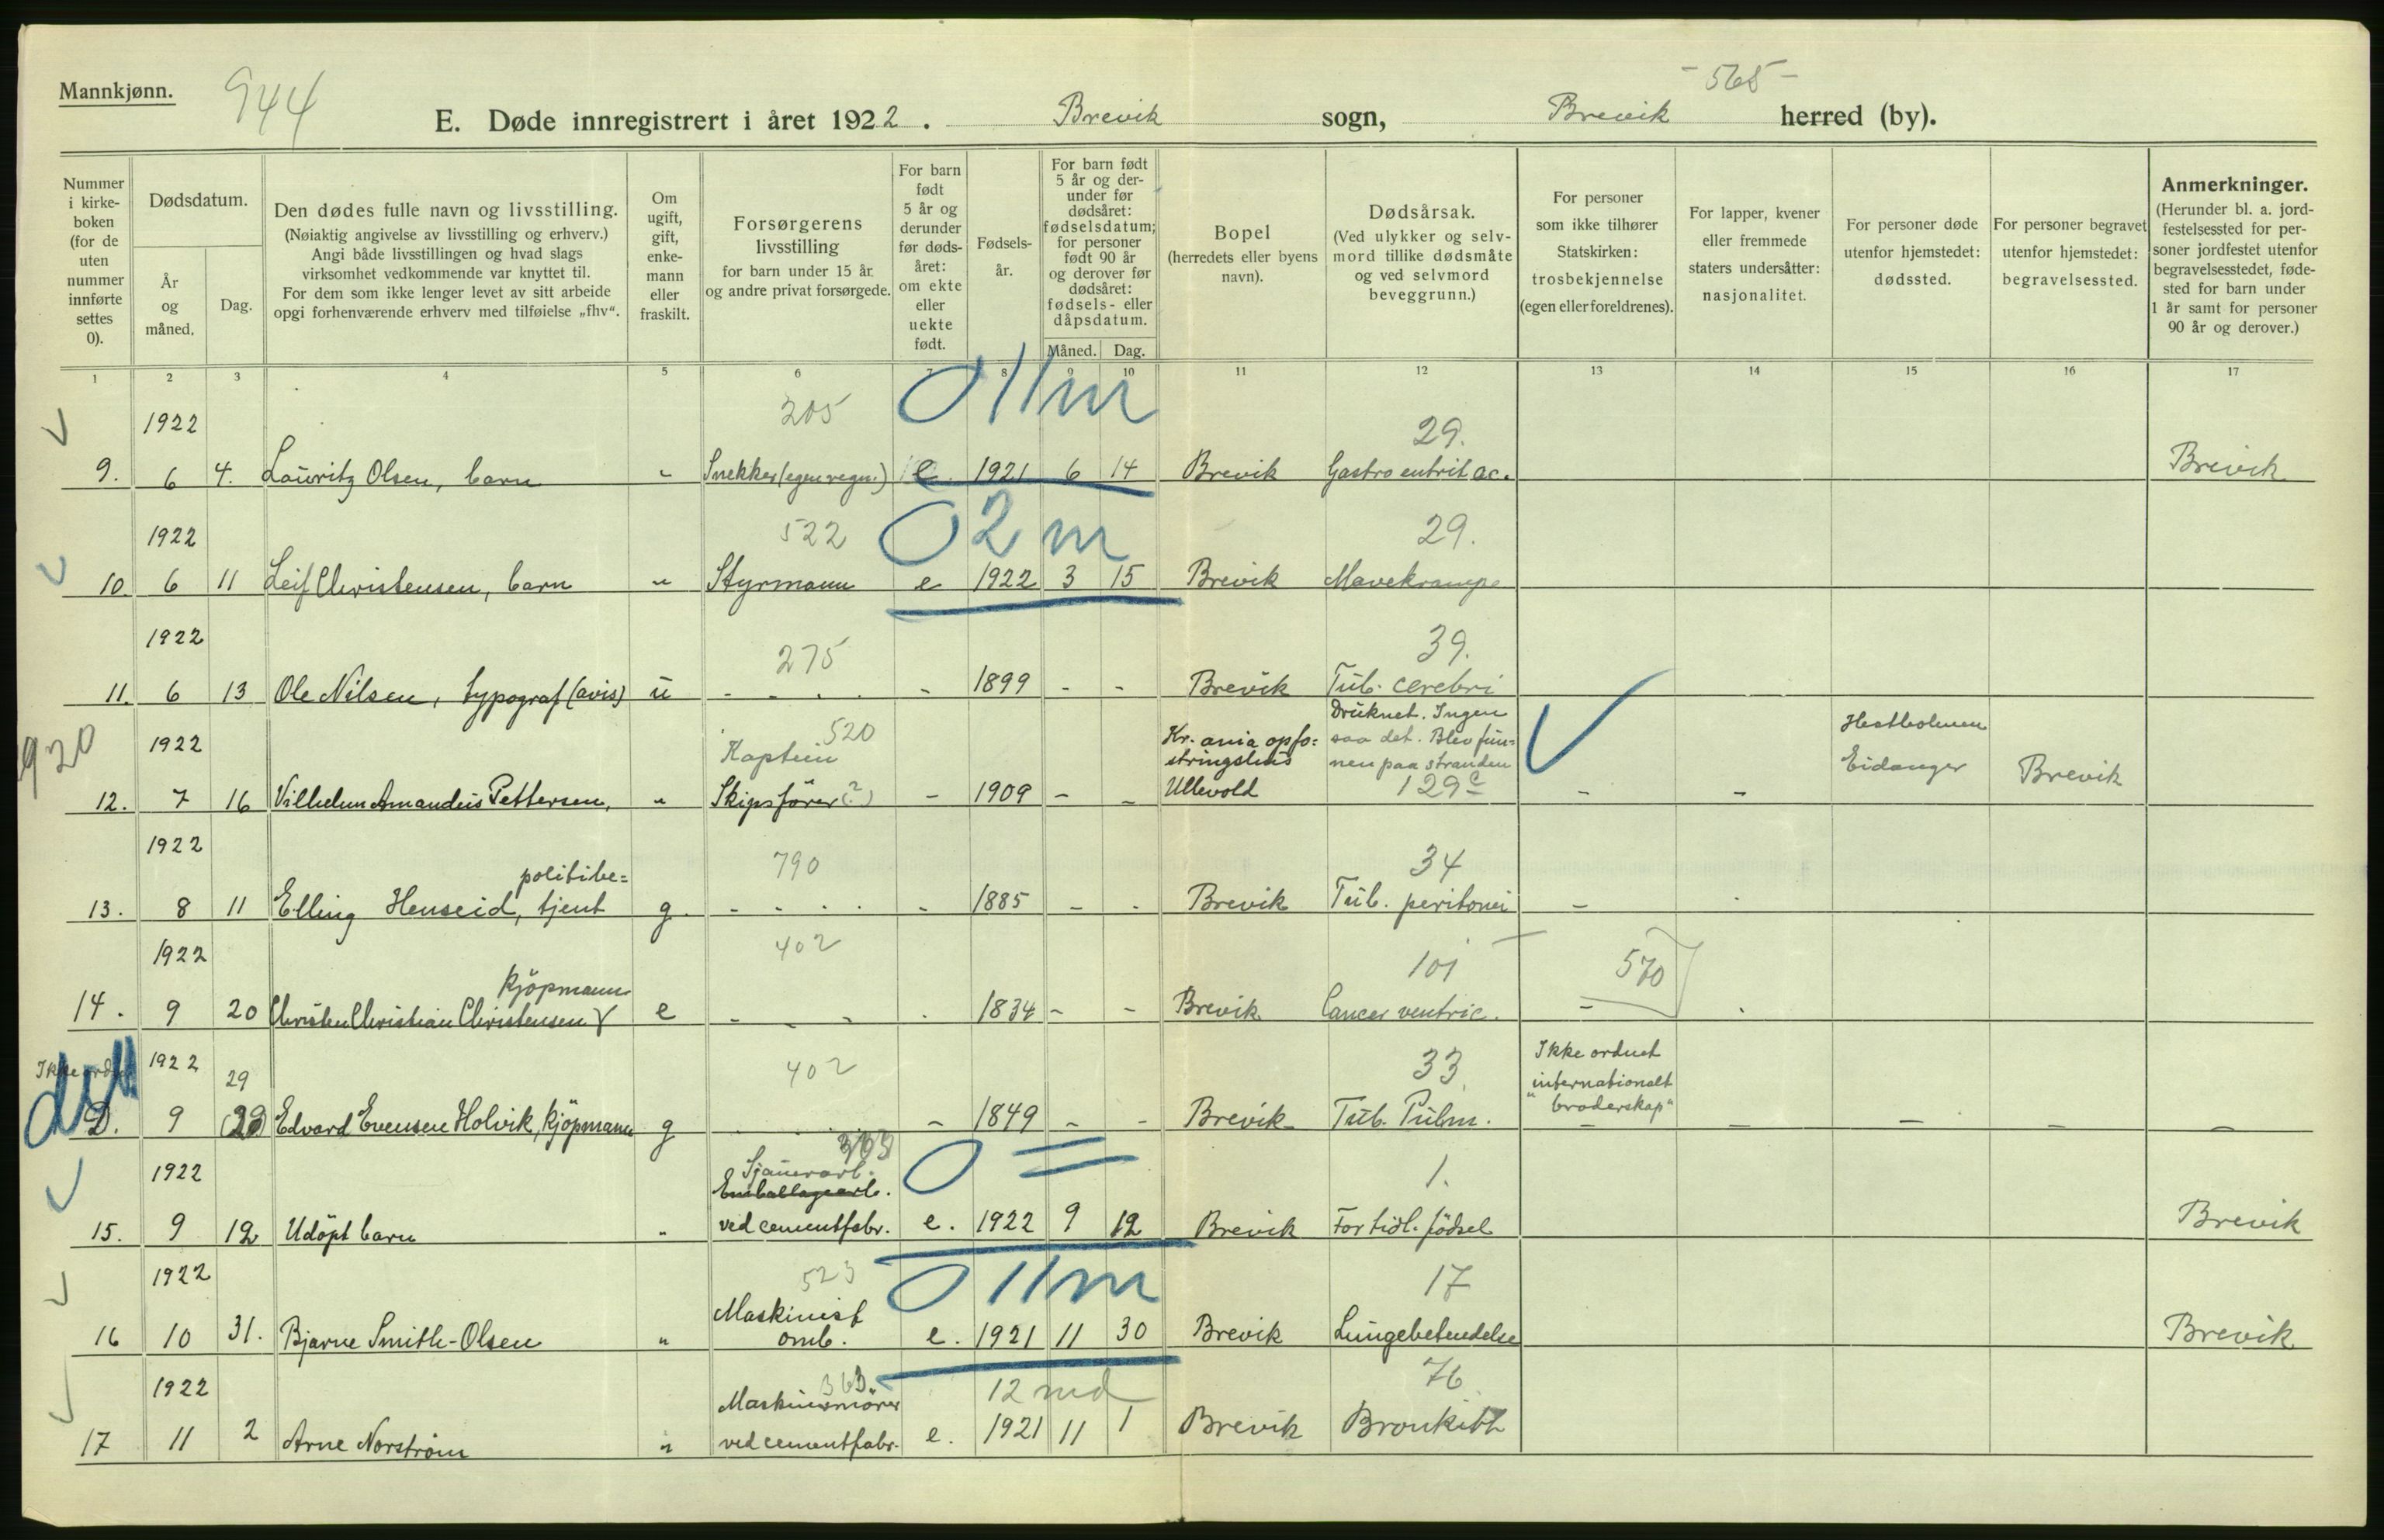 Mannkjønn.
944
- 565 -
E. Døde innregistrert i året 1922. Brevik sogn, Brevik herred (by).
Nummer i kirke-boken (for de uten nummer innførte settes 0).
Dødsdatum.
År og måned.
Dag.
Den dødes fulle navn og livsstilling.
(Nøiaktig angivelse av livsstilling og erhverv.)
Angi både livsstillingen og hvad slags
virksomhet vedkommende var knyttet til.
For dem som ikke lenger levet av sitt arbeide
opgi forhenværende erhverv med tilføielse „fhv“.
Om ugift, gift, enke-mann eller fraskilt.
Forsørgerens livsstilling
for barn under 15 år
og andre privat forsørgede.
For barn født 5 år og derunder før døds-året: om ekte eller uekte født.
Fødsels-år.
For barn født 5 år og der-under før dødsåret: fødselsdatum; for personer født 90 år og derover før dødsåret: fødsels- eller dåpsdatum.
Måned. Dag.
Bopel
(herredets eller byens navn).
Dødsårsak.
(Ved ulykker og selv-mord tillike dødsmåte og ved selvmord beveggrunn.)
For personer som ikke tilhører Statskirken: trosbekjennelse (egen eller foreldrenes).
For lapper, kvener eller fremmede staters undersåtter: nasjonalitet.
For personer døde utenfor hjemstedet: dødssted.
For personer begravet utenfor hjemstedet: begravelsessted.
Anmerkninger.
(Herunder bl. a. jord-festelsessted for per-soner jordfestet utenfor begravelsesstedet, føde-sted for barn under 1 år samt for personer 90 år og derover.)
1 2 3 4 5 6 7 8 9 10 11 12 13 14 15 16 17
1922 205 0 11 m 29.
9. 6 4. Lauritz Olsen, barn " Snekker (egen regn.) e. 1921 6 14 Brevik Gastro entrit ac. Brevik
1922 522 0 2 m 29.
10. 6 11 Leif Christensen, barn " Styrmann e 1922 3 15 Brevik Mavekrampe
1922 275 39.
11. 6 13 Ole Nilsen, typograf (avis) u - - . . - 1899 - - Brevik Tub. cerebri
920 1922 Kaptein 520 Kr.ania opfo= stringshus Druknet. Ingen saa det. Blev fun= nen paa stranden Hestholmen
12. 7 16 Vilhelm Amandus Pettersen, " Skipsfører (?) - 1909 - - Ullevold 129 c - - Eidanger Brevik
1922 politibe= 790 34
13. 8 11 Elling Henseid, tjent g. - - . . - 1885 - - Brevik Tub. peritonei - -
1922 kjöpmann 402 101 570
14. 9 20 Christen Christian Christensen e - - - . 1834 - - Brevik Cancer ventric. - .
Ikke ordnet 1922 29 402 33. Ikke ordnet internationalt "broderskap"
D. 9 (29) Edvard Evensen Holvik, kjöpmann g - 1849 - - Brevik Tub. Pulm. - - - - -
1922 Sjauerarb. Emballagearb. 0 1.
15. 9 12 Udöpt barn " ved cementfabr. e. 1922 9 12 Brevik For tidl. födsel Brevik
1922 523 0 11 m 17
16 10 31. Bjarne Smith-Olsen " Maskinist omb. e. 1921 11 30 Brevik Lungebetendelse Brevik
1922 363 12 md 76
17 11 2 Arne Norström " Maskinsmörer ved cementfabr. e. 1921 11 1 Brevik Bronkitt